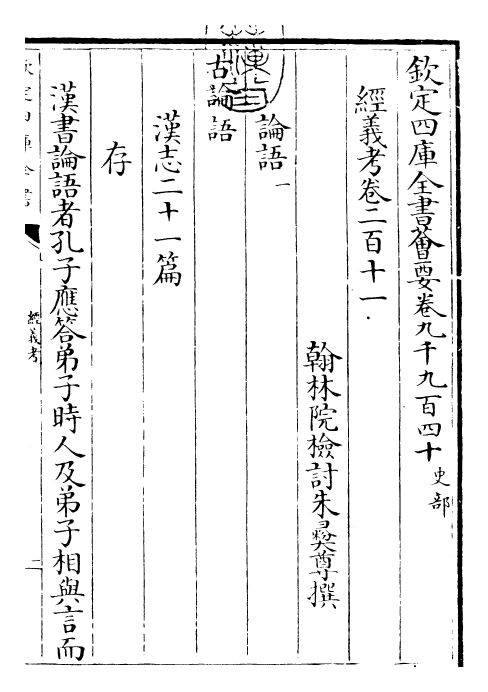 欽定四庫全書薈要卷九千九百四十 史部
經義考卷二百十一
翰林院檢討朱彝尊撰
論語一
古論語
漢志二十一篇
存
漢書論語者孔子應答弟子時人及弟子相與言而
經義考